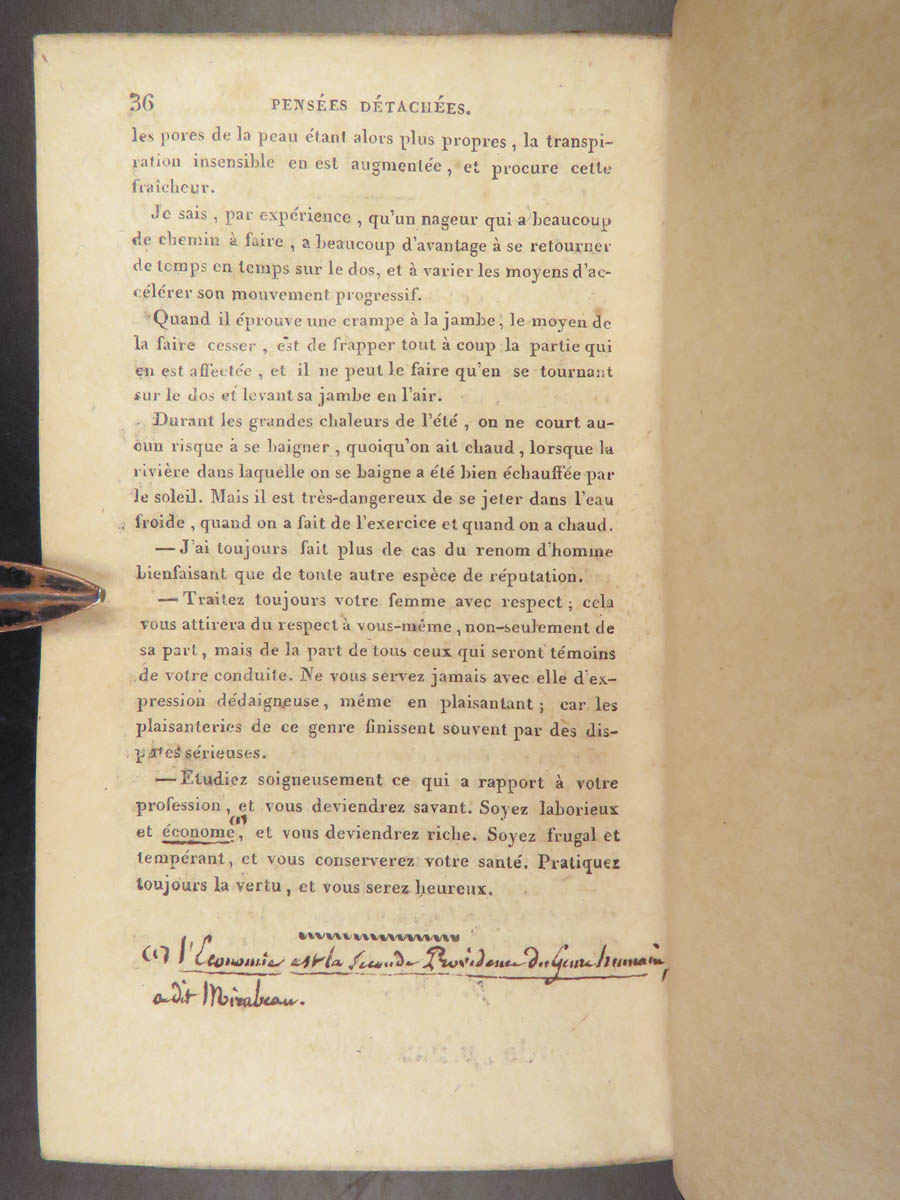 36 PENSÉES DÉTACHÉES.
les pores de la peau étant alors plus propres, la transpi-
ration insensible en est augmentée, et procure cette
fraîcheur.
Je sais, par expérience, qu'un nageur qui a beaucoup
de chemin à faire, a beaucoup d'avantage à se retourner
de temps en temps sur le dos, et à varier les moyens d'ac-
célérer son mouvement progressif.
Quand il éprouve une crampe à la jambe, le moyen de
la faire cesser, est de frapper tout à coup la partie qui
en est affectée, et il ne peut le faire qu'en se tournant
sur le dos et levant sa jambe en l'air.
Durant les grandes chaleurs de l'été, on ne court au-
cun risque à se baigner, quoiqu'on ait chaud, lorsque la
rivière dans laquelle on se baigne a été bien échauffée par
le soleil. Mais il est très-dangereux de se jeter dans l'eau
froide, quand on a fait de l'exercice et quand on a chaud.
— J'ai toujours fait plus de cas du renom d'homme
bienfaisant que de toute autre espèce de réputation.
— Traitez toujours votre femme avec respect; cela
vous attirera du respect à vous-même, non-seulement de
sa part, mais de la part de tous ceux qui seront témoins
de votre conduite. Ne vous servez jamais avec elle d'ex-
pression dédaigneuse, même en plaisantant; car les
plaisanteries de ce genre finissent souvent par des dis-
putes sérieuses.
— Etudiez soigneusement ce qui a rapport à votre
profession, et vous deviendrez savant. Soyez laborieux
et économe (1), et vous deviendrez riche. Soyez frugal et
tempérant, et vous conserverez votre santé. Pratiquez
toujours la vertu, et vous serez heureux.
(1) l'Economie est la seconde Providence du Genre humain,
a dit Mirabeau.